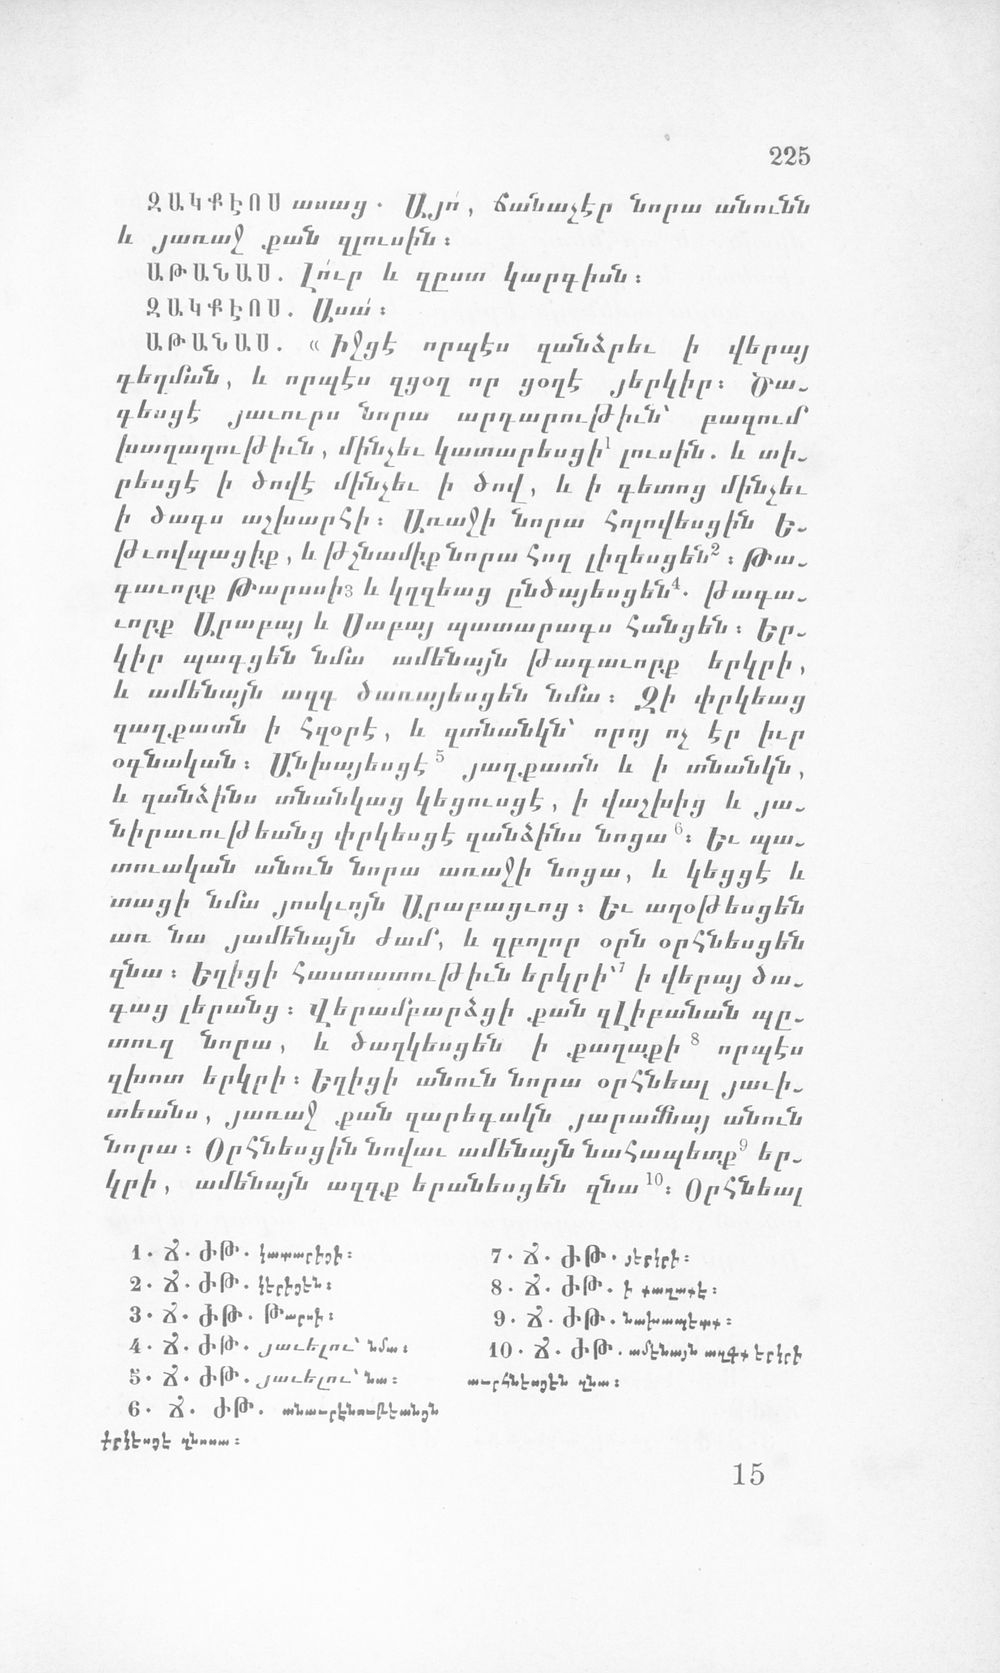 225
ԶԱԿՔԷՈՍ ասաց. Այո՛, ճանաչէր նորա անունն
և յառաջ քան զլուսին։
ԱԹԱՆԱՍ. Լո՛ւր և զըստ կարգիսն։
ԶԱԿՔԷՈՍ. Ասա՛։
ԱԹԱՆԱՍ. « Իջցէ որպէս զանձրեւ ի վերայ
գեղման, և որպէս զցօղ որ ցօղէ յերկիր։ Ծա֊
գեսցէ յաւուրս նորա արդարութիւն՝ բազում
խաղաղութիւն, մինչեւ կատարեսցի1 լուսին. և տի֊
րեսցէ ի ծովէ մինչեւ ի ծով, և ի գետոց մինչեւ
ի ծագս աշխարհի։ Առաջի նորա հոլովեսցին Ե֊
թւովպացիք, և թշնամիք նորա հող լիզեսցեն2։ Թա֊
գաւորք Թարսսի3 և կղզեաց ընծայեսցեն4. թագա֊
ւորք Արաբայ և Սաբայ պատարագս հանցեն։ Եր֊
կիր պագցեն նմա ամենայն թագաւորք երկրի,
և ամենայն ազգ ծառայեսցեն նմա։ Զի փրկեաց
զաղքատն ի հզօրէ, և զտնանկն՝ որոյ ոչ էր իւր
օգնական։ Անխայեսցէ5 յաղքատն և ի տնանկն,
և զանձինս տնանկաց կեցուսցէ, ի վաշխից և յա֊
նիրաւութեանց փրկեսցէ զանձինս նոցա6։ Եւ պա֊
տուական անուն նորա առաջի նոցա, և կեցցէ և
տացի նմա յոսկւոյն Արաբացւոց։ Եւ աղօթեսցեն
առ նա յամենայն ժամ, և զբոլոր օրն օրհնեսցեն
զնա։ Եղիցի հաստատութիւն երկրի՝7 ի վերայ ծա֊
գաց լերանց։ Վերամբարձցի քան զԼիբանան պը֊
տուղ նորա, և ծաղկեսցեն ի քաղաքի8 որպէս
զխոտ երկրի։ Եղիցի անուն նորա օրհնեալ յաւի֊
տեանս, յառաջ քան զարեգակն յարամնայ անուն
նորա։ Օրհնեսցին նովաւ ամենայն նահապետք9 եր֊
կրի, ամենայն ազգք երանեսցեն զնա10։ Օրհնեալ
1. Ճ. ԺԹ. կատարիցի։
2. Ճ. ԺԹ. կերիցեն։
3. Ճ. ԺԹ. Թարսի։
4. Ճ. ԺԹ. յաւելու՝ նմա։
5. Ճ. ԺԹ. յաւելու՝ նա։
6. Ճ. ԺԹ. անաւրէնութեանցն
փրկեսցէ զնոսա։
7. Ճ. ԺԹ. յերկրի։
8. Ճ. ԺԹ. ի քաղաքէ։
9. Ճ. ԺԹ. նախապետք։
10. Ճ. ԺԹ. ամենայն ազգք երկրի
աւրհնեսցեն զնա։
15